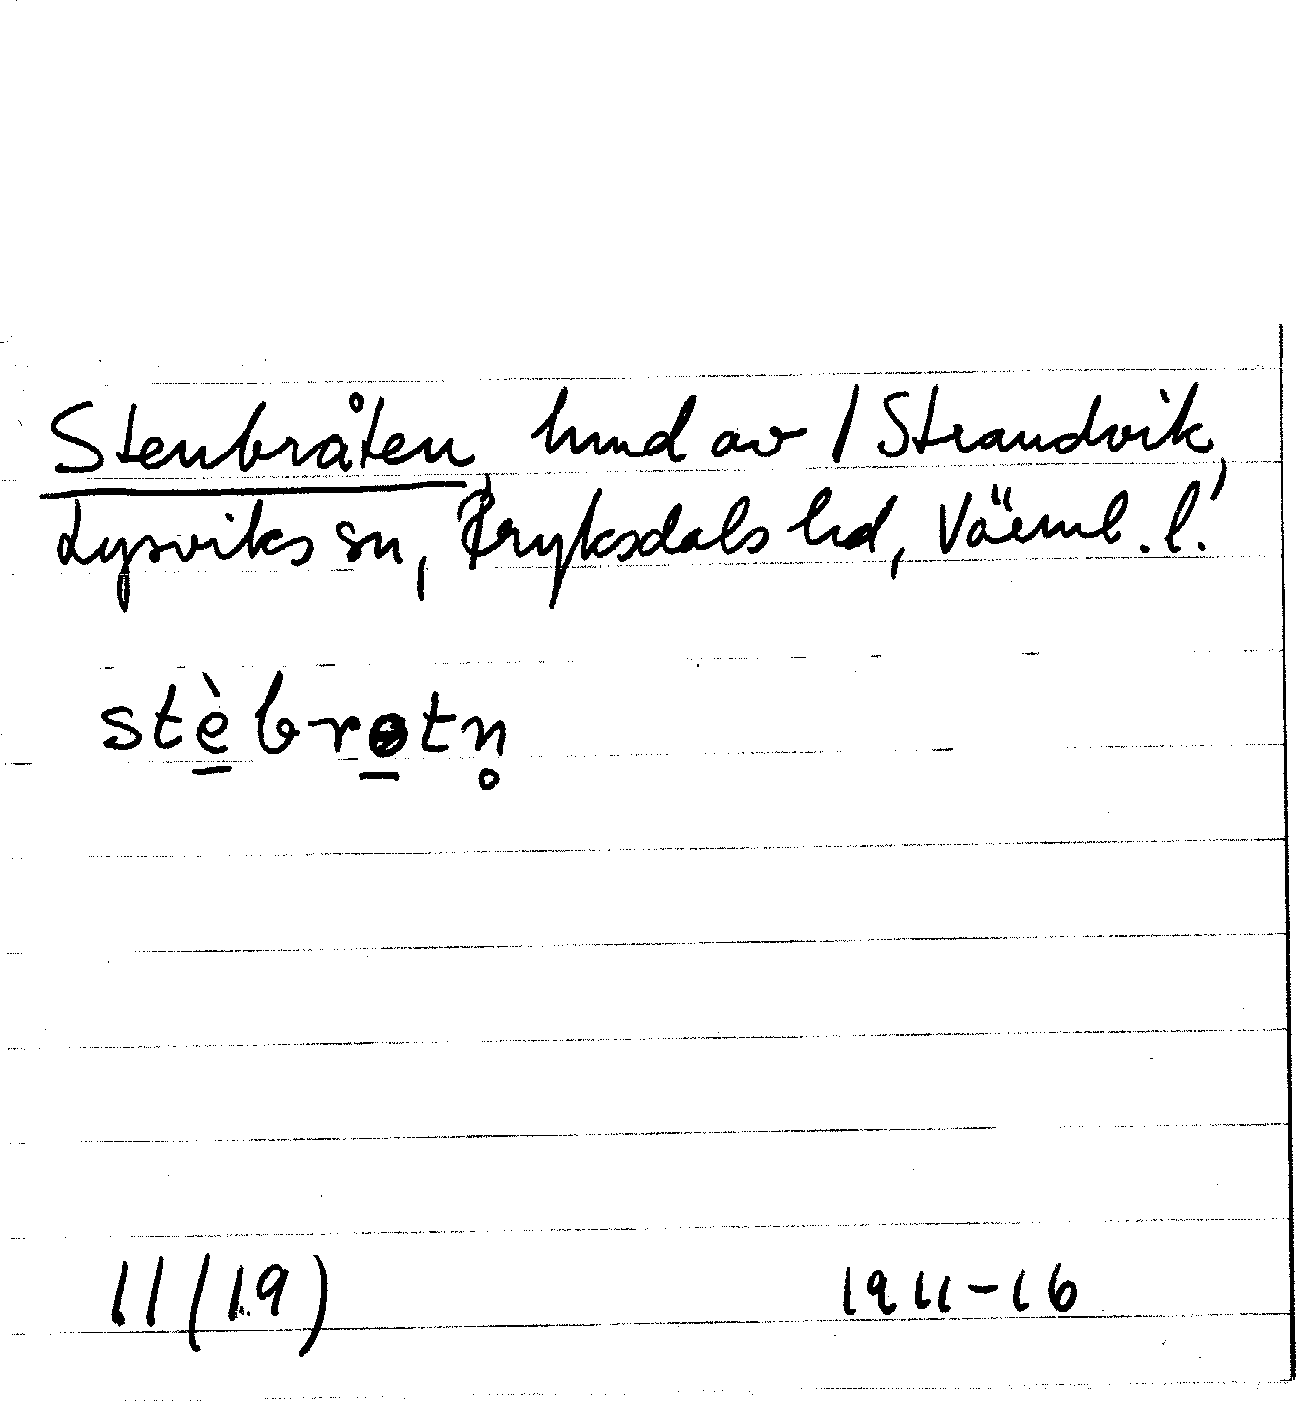 Stenbråten, hmd av 1 Strandvik,
Lysviks sn, Fryksdals hd, Värml. l.
stèbrotn̥
11 (19)
1911-16